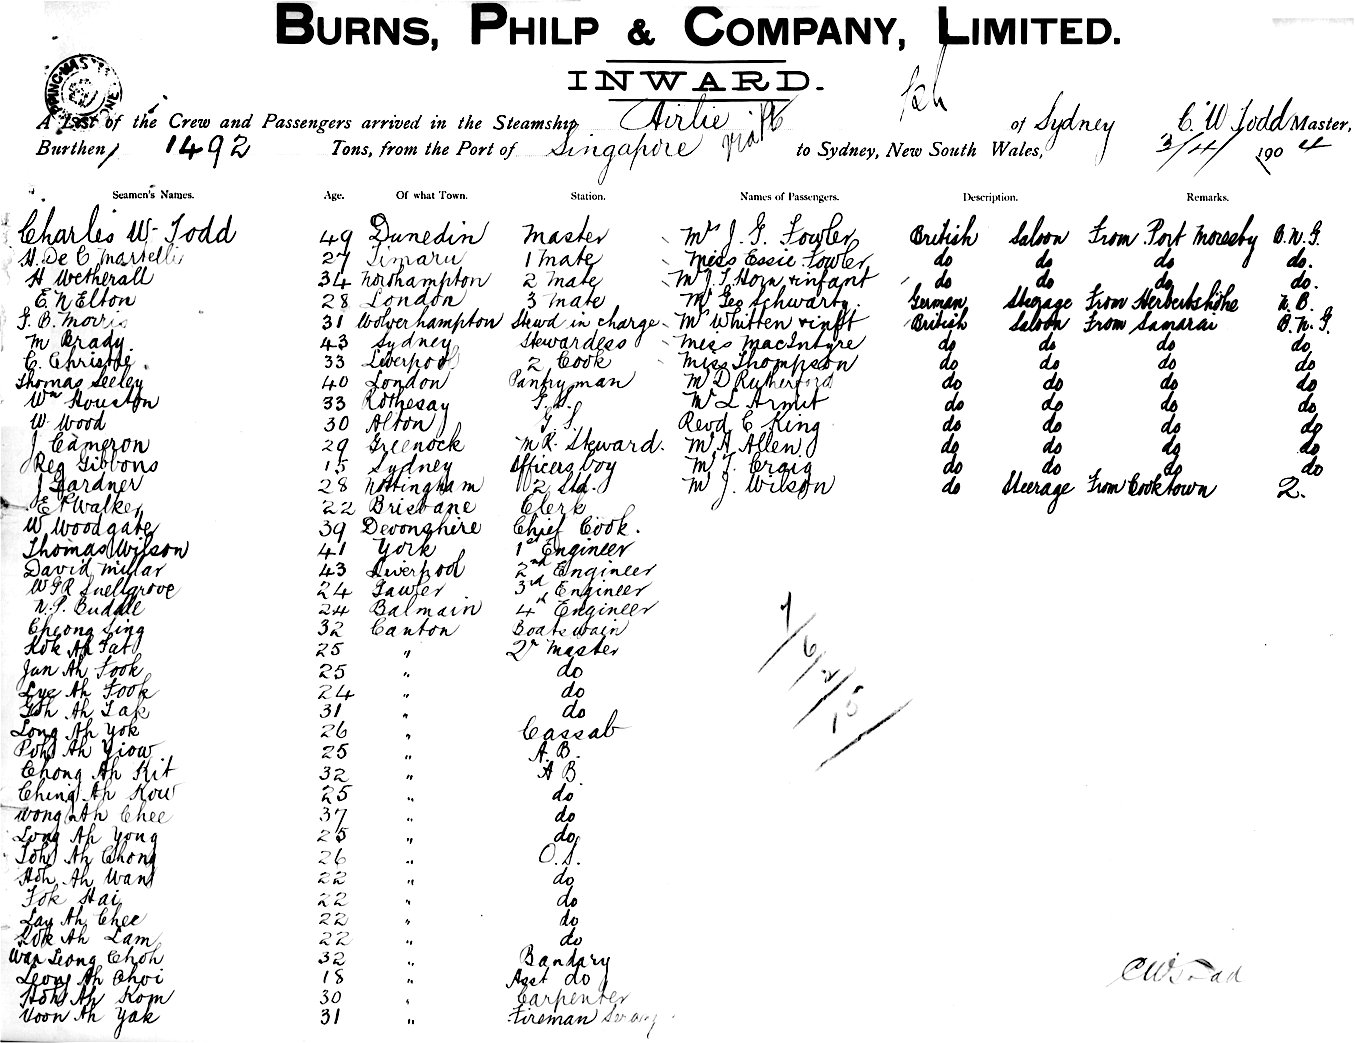 BURNS, PHILP & COMPANY, LIMITED.
INWARD.
A List of the Crew and Passengers arrived in the Steamship Airlie of Sydney C. W. Todd Master,
Burthen, 1492 Tons, from the Port of Singapore to Sydney, New South Wales, 3/4/ 1904
Seamen's Names. Age. Of what Town. Station. Names of Passengers. Description. Remarks.
Charles W. Todd 49 Dunedin Master Mr J. G. Fowler British Saloon From Port Moresby B.N.G.
H. De C. Martelli 27 Timaru 1 Mate Miss Essie Fowler do do do do.
H Wetherall 34 Northampton 2 Mate M J. T. Horn & infant do do do do.
E. N Elton 28 London 3 Mate Mr Geo Schwartz. German Steerage From Herbertshöhe N.B.
G. B. Morris 31 Wolverhampton Stewd in charge Mrs Whitten & inft British Saloon From Samarai B.N.G.
M Brady. 43 Sydney Stewardess Miss MacIntyre do do do do
C. Christie 33 Liverpool 2 Cook Miss Thompson do do do do
Thomas Seeley 40 London Pantryman Mr D Rutherford do do do do
Wm Houston 33 Rothesay G.S. Mr L Armit do do do do
W. Wood 30 Alton G.S. Revd C King do do do do
J Cameron 29 Greenock M.R. Steward. Mr A Allen do do do do
Reg Gibbons 15 Sydney Officers boy Mr J. Craig do do do do
J Gardner 28 Nottingham 2 Std. Mr J. Wilson do Steerage From Cooktown 2.
E P Walker 22 Brisbane Clerk
W Woodgate 39 Devonshire Chief Cook.
Thomas Wilson 41 York 1st Engineer
David Millar 43 Liverpool 2nd Engineer
W G R Snellgrove 24 Gawler 3rd Engineer
N. P. Buddle 24 Balmain 4th Engineer
Cheong Sing 32 Canton Boatswain
Kok Ah Fat 25 " Qr Master
Jan Ah Fook 25 " do
Lye Ah Fook 24 " do
Goh Ah Tak 31 " do
Long Ah Yok 26 " Cassab
Poh Ah Yiow 25 " A.B.
Chong Ah Kit 32 " A B
Ching Ah Kow 25 " do
Wong Ah Chee 37 " do
Long Ah Yong 25 " do
Toh Ah Chong 26 " O.S.
Hoh Ah Wan 22 " do
Fok Hai 22 " do
Lay Ah Chee 22 " do
Kok Ah Lam 22 " do
Wan Leong Choh 32 " Bandary
Leong Ah Choi 18 " Asst do
Hoh Ah Kom 30 " Carpenter
Voon Ah Yak 31 " Fireman Serang
1/6/2/15
C W Todd